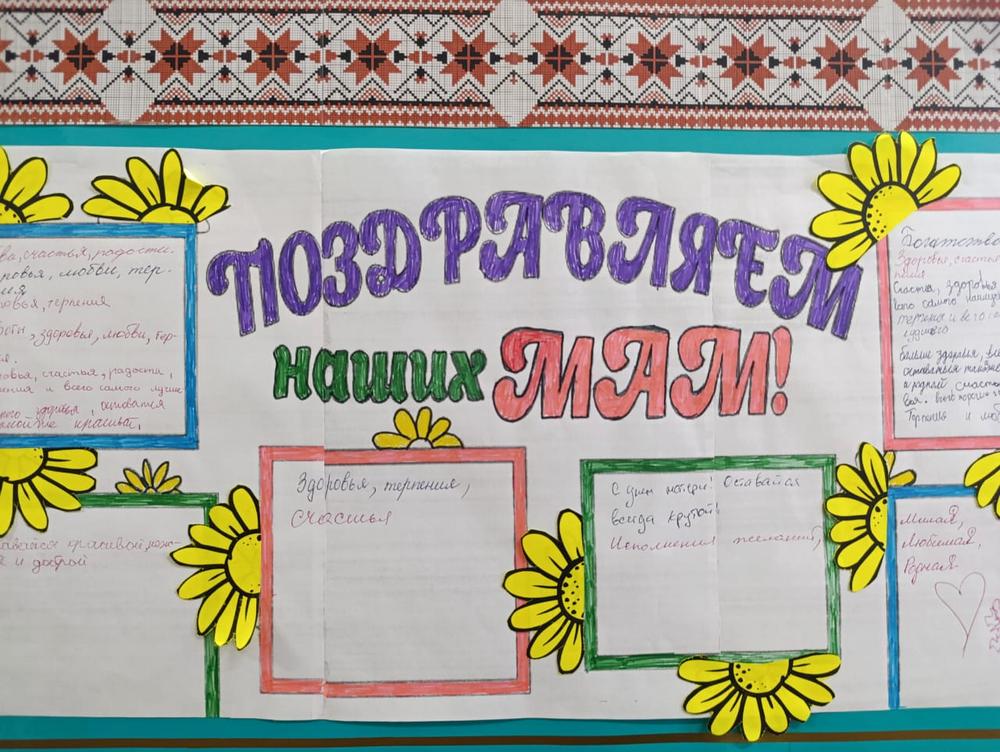 ПОЗДРАВЛЯЕМ
наших МАМ!
счастья, радости.
любви, тер-
терпения
здоровья, любви, тер-
счастья, радости,
и всего самого лучше
здоровья, оставатся
красивый,
красивой,
и доброй
Здоровья, терпения,
Счастья
С днем матери! Оставайся
всегда крутой!
Исполнения желаний,
Богатства
Здоровья, счастья
пения
Счастья, здоровья
всего самого
терпения и всего
лудшего
Больше здоровья, все
оставаться
и родной, счаст
вья.
Терпения и люб
Милая,
Любимая,
Родная